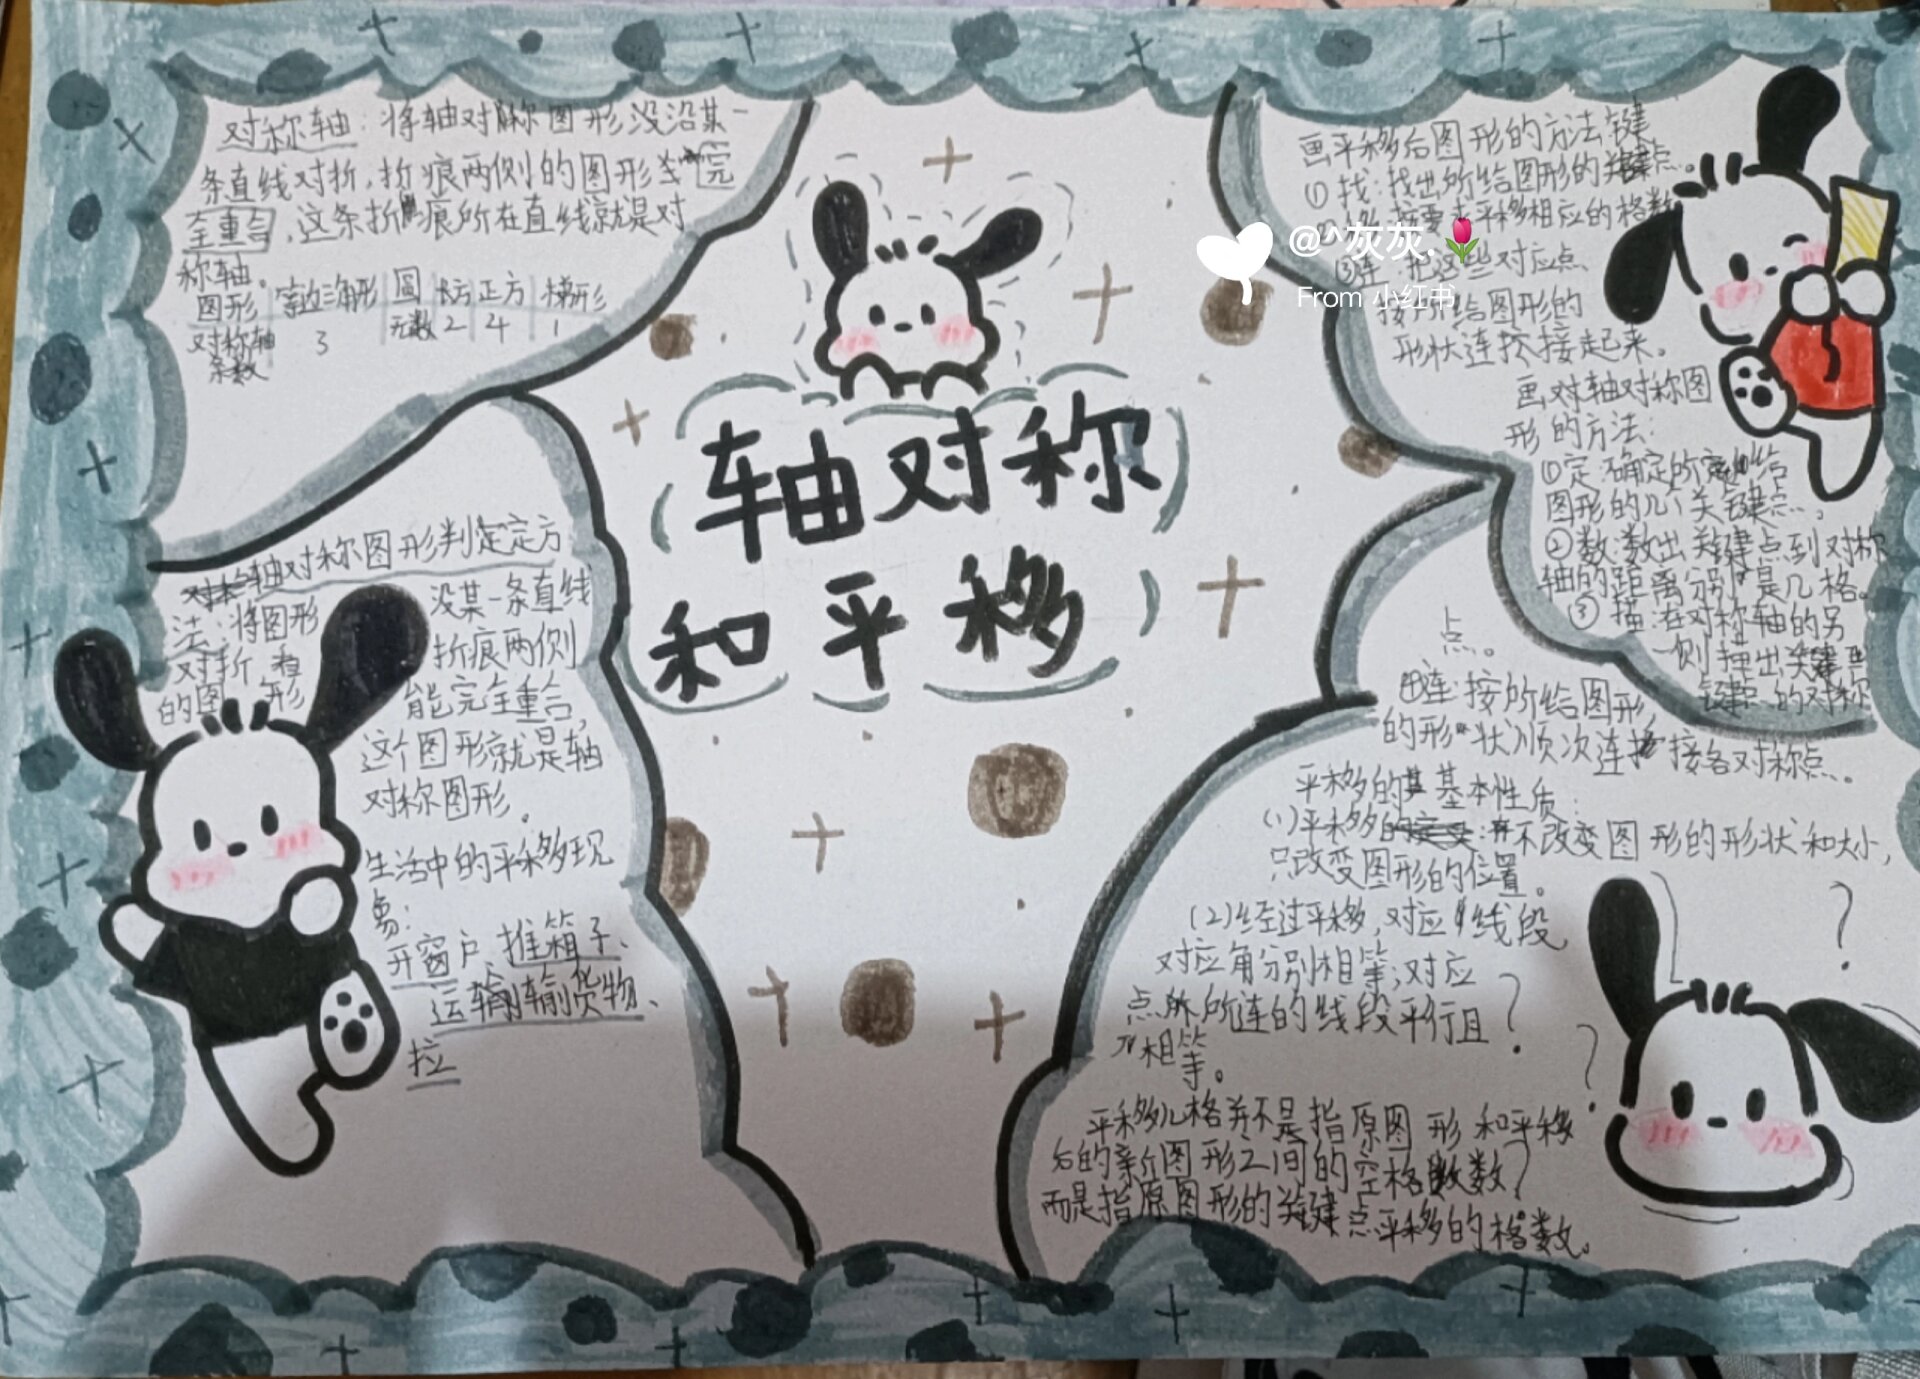 对称轴：将轴对称图形没沿某一
条直线对折，折痕两侧的图形 完
全重合，这条折痕所在直线就是对
称轴。
图形 等边三角形 圆 长方 正方 梯形
对称轴条数 3 无数 2 4 1
轴对称图形判定定方
法：将图形 没某一条直线
对折 折痕两侧
的图形 能完全重合，
这个图形就是轴
对称图形。
生活中的平移现
象：
开窗户、推箱子、
运输货物、
拉
轴对称
和平移
@^灰灰.🌷
From 小红书
画平移后图形的方法
①找：找出所给图形的关键点。
按要求平移相应的格数
③连：把这些对应点
按所给图形的
形状连接起来。
画对轴对称图
形的方法：
①定：确定所给
图形的几个关键点。
②数：数出关键点到对称
轴的距离分别是几格。
③描：在对称轴的另
一侧描出关键
的对称
点。
④连：按所给图形
的形状顺次连接各对称点。
平移的基本性质：
(1)平移 不改变图形的形状和大小，
只改变图形的位置。
(2)经过平移，对应线段，
对应角分别相等；对应
点所连的线段平行且
相等。
平移几格并不是指原图形和平移
后的新图形之间的空格数，
而是指原图形的关键点平移的格数。